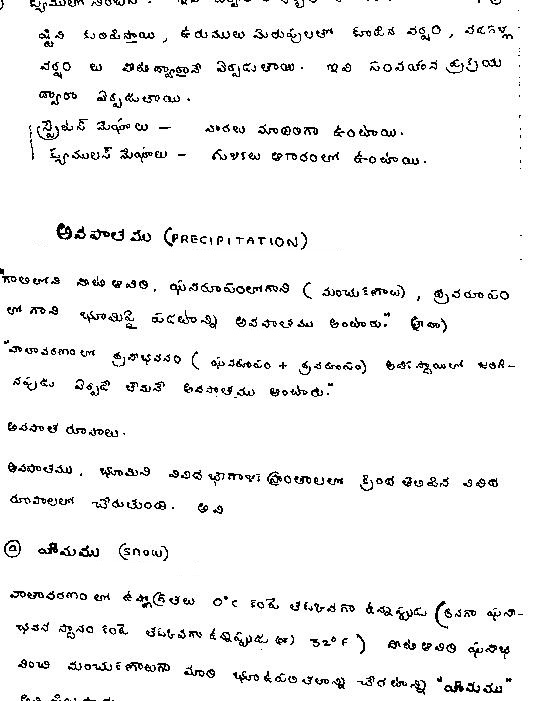 ష్టిని కురిపిస్తాయి, ఉరుములు మెరుపులతో కూడిన వర్షం, వడగళ్ల
వర్షం లు వీటి ద్వారానే ఏర్పడుతాయి. ఇవి సంవహన ప్రక్రియ
ద్వారా ఏర్పడుతాయి.
స్ట్రేటస్ మేఘాలు – పొరలు మాదిరిగా ఉంటాయి.
క్యుములస్ మేఘాలు – గుళికలు ఆకారంలో ఉంటాయి.
అవపాతము (PRECIPITATION)
"గాలిలోని నీటి ఆవిరి, ఘనరూపంలోగాని (మంచుకణాలు), ద్రవరూపం
లో గాని భూమిపై పడటాన్ని అవపాతము అంటారు." (లేదా)
"వాతావరణంలో ద్రవీభవనం (ఘనరూపం + ద్రవరూపం) అతిస్థాయిలో జరిగి-
నపుడు ఏర్పడే తేమనే అవపాతము అంటారు."
అవపాత రూపాలు.
అవపాతము, భూమిని వివిధ భాగాళ ప్రాంతాలలో క్రింద తెలిపిన వివిధ
రూపాలలో చేరుతుంది. అవి
ⓐ హిమము (SNOW)
వాతావరణం లో ఉష్ణోగ్రతలు 0°C కంటే తక్కువగా ఉన్నప్పుడు (అనగా ఘనీ-
భవన స్థానం కంటే తక్కువగా ఉన్నపుడు (లేదా) 32°F) నీటి ఆవిరి ఘనీభ
వించి మంచుకణాలుగా మారి భూఉపరితలాన్ని చేరటాన్ని "హిమము"